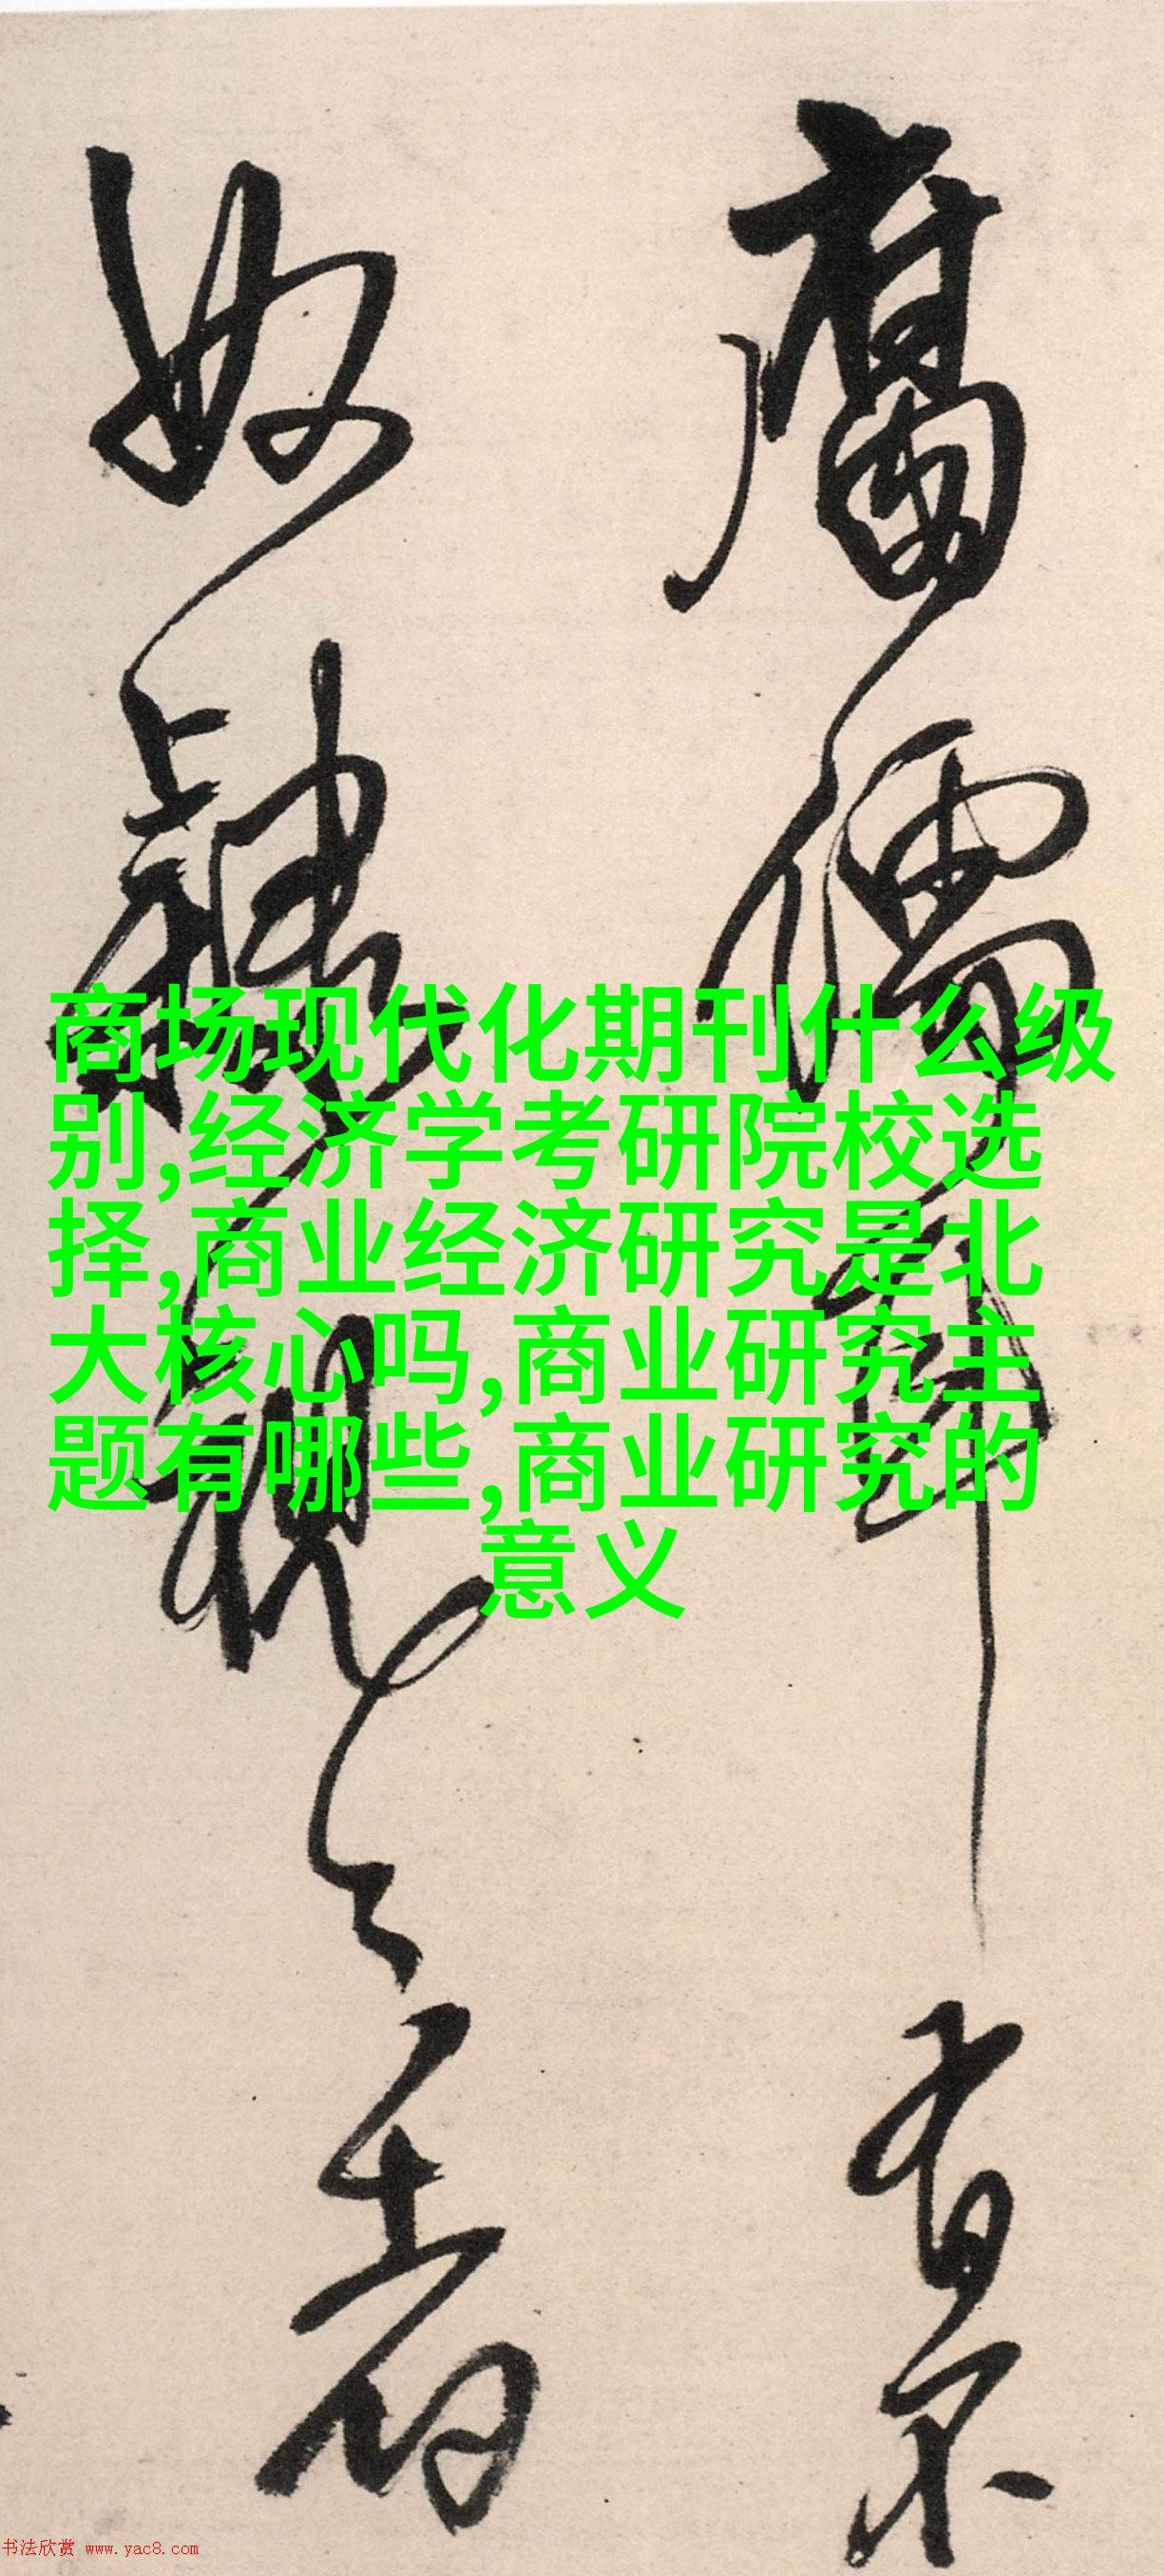 腐儒碎有不
奴隶视之者
商场现代化期刊什么级
别,经济学考研院校选
择,商业经济研究是北
大核心吗,商业研究主
题有哪些,商业研究的
意义
书法欣赏 www.yac8.com